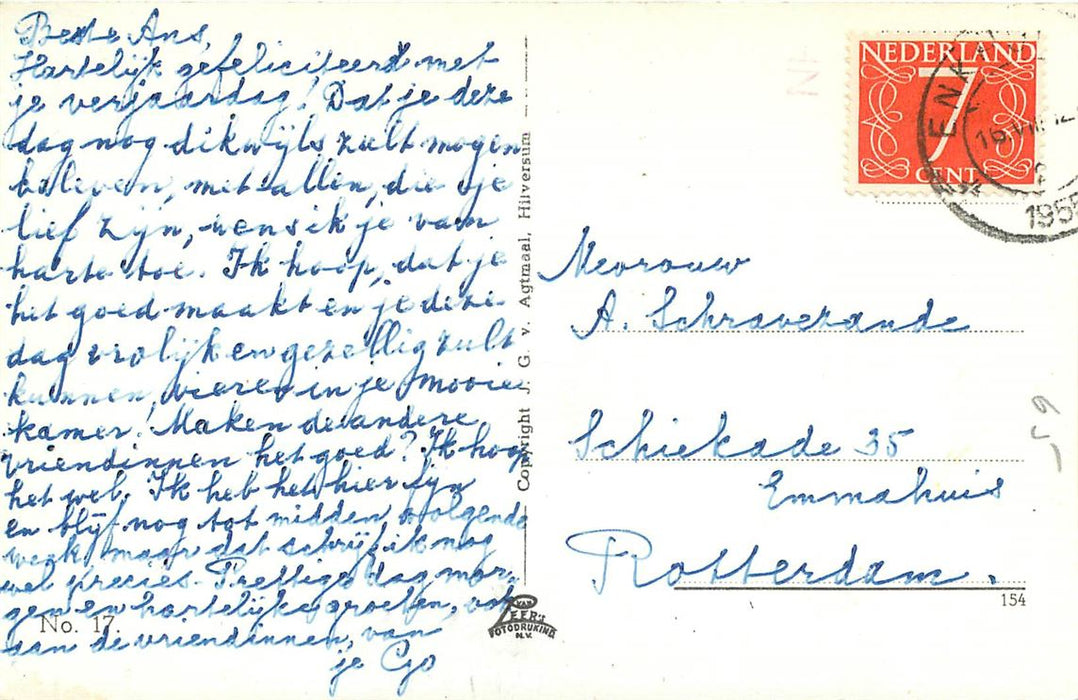 Beste Ans,
Hartelijk gefeliciteerd met
je verjaardag! Dat je deze
dag nog dikwijls zult mogen
beleven, met allen, die je
lief zijn, wens ik je van
harte toe. Ik hoop, dat je
het goed maakt en je deze
dag vrolijk en gezellig zult
kunnen vieren in je mooie
kamer. Maken de andere
vriendinnen het goed? Ik hoop
het wel. Ik heb het hier fijn
en blijf nog tot midden volgende
week, maar dat schrijf ik nog
wel precies. Prettige dag mor-
gen en hartelijke groeten, ook
aan de vriendinnen, van
je Cjo
No. 17.
Copyright J. G. v. Agtmaal, Hilversum
VAN LEER'S
FOTODRUKIND.
N.V.
NEDERLAND
7
CENT
ENK
16 VII 12
1955
Mevrouw
A. Schraverande
Schiekade 35
Emmahuis
Rotterdam.
154
59